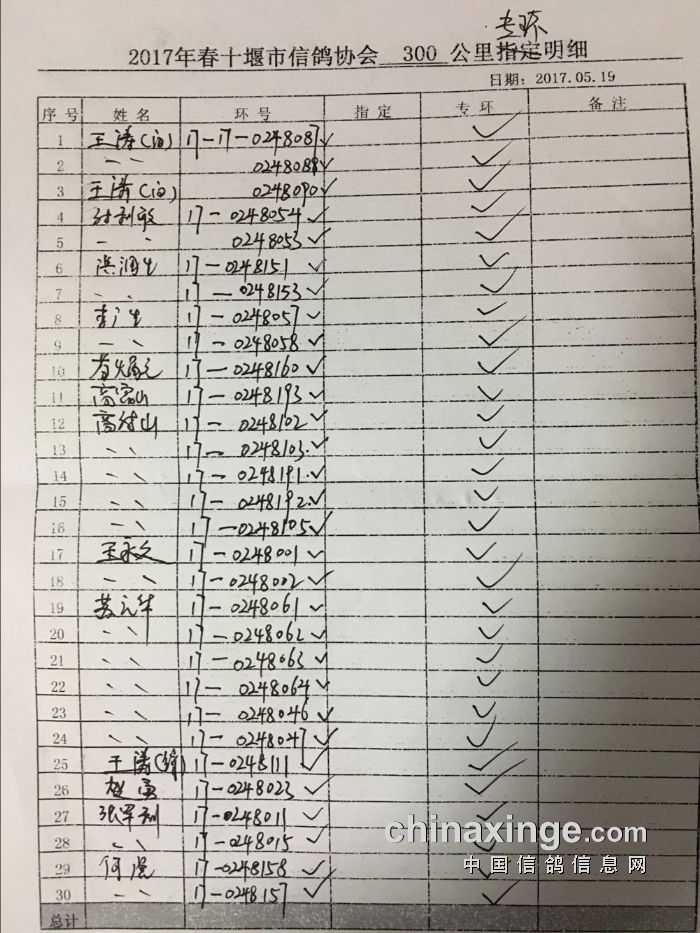 专环
2017年春十堰市信鸽协会 300 公里指定明细
日期: 2017.05.19
序号 姓名 环号 指定 专环 备注
1 王涛(白) 17-17-0248087✓ ✓
2 〃 0248088✓ ✓
3 王涛(白) 0248090✓ ✓
4 17-0248054✓ ✓
5 〃 0248053✓ ✓
6 洪润生 17-0248151✓ ✓
7 〃 17-0248153✓ ✓
8 李广生 17-0248057✓ ✓
9 〃 17-0248058✓ ✓
10 17-0248160✓ ✓
11 高富山 17-0248193✓ ✓
12 高付山 17-0248102✓ ✓
13 〃 17-0248103✓ ✓
14 〃 17-0248191✓ ✓
15 〃 17-0248192✓ ✓
16 〃 17-0248105✓ ✓
17 王永文 17-0248001✓ ✓
18 〃 17-0248002✓ ✓
19 苏元华 17-0248061✓ ✓
20 〃 17-0248062✓ ✓
21 〃 17-0248063✓ ✓
22 〃 17-0248064✓ ✓
23 〃 17-0248046✓ ✓
24 〃 17-0248047✓ ✓
25 王涛 17-0248111✓ ✓
26 赵勇 17-0248023✓ ✓
27 张军利 17-0248011✓ ✓
28 〃 17-0248015✓ ✓
29 何滨 17-0248158✓ ✓
30 〃 17-0248157✓ ✓
总计
chinaxinge.com
中国信鸽信息网